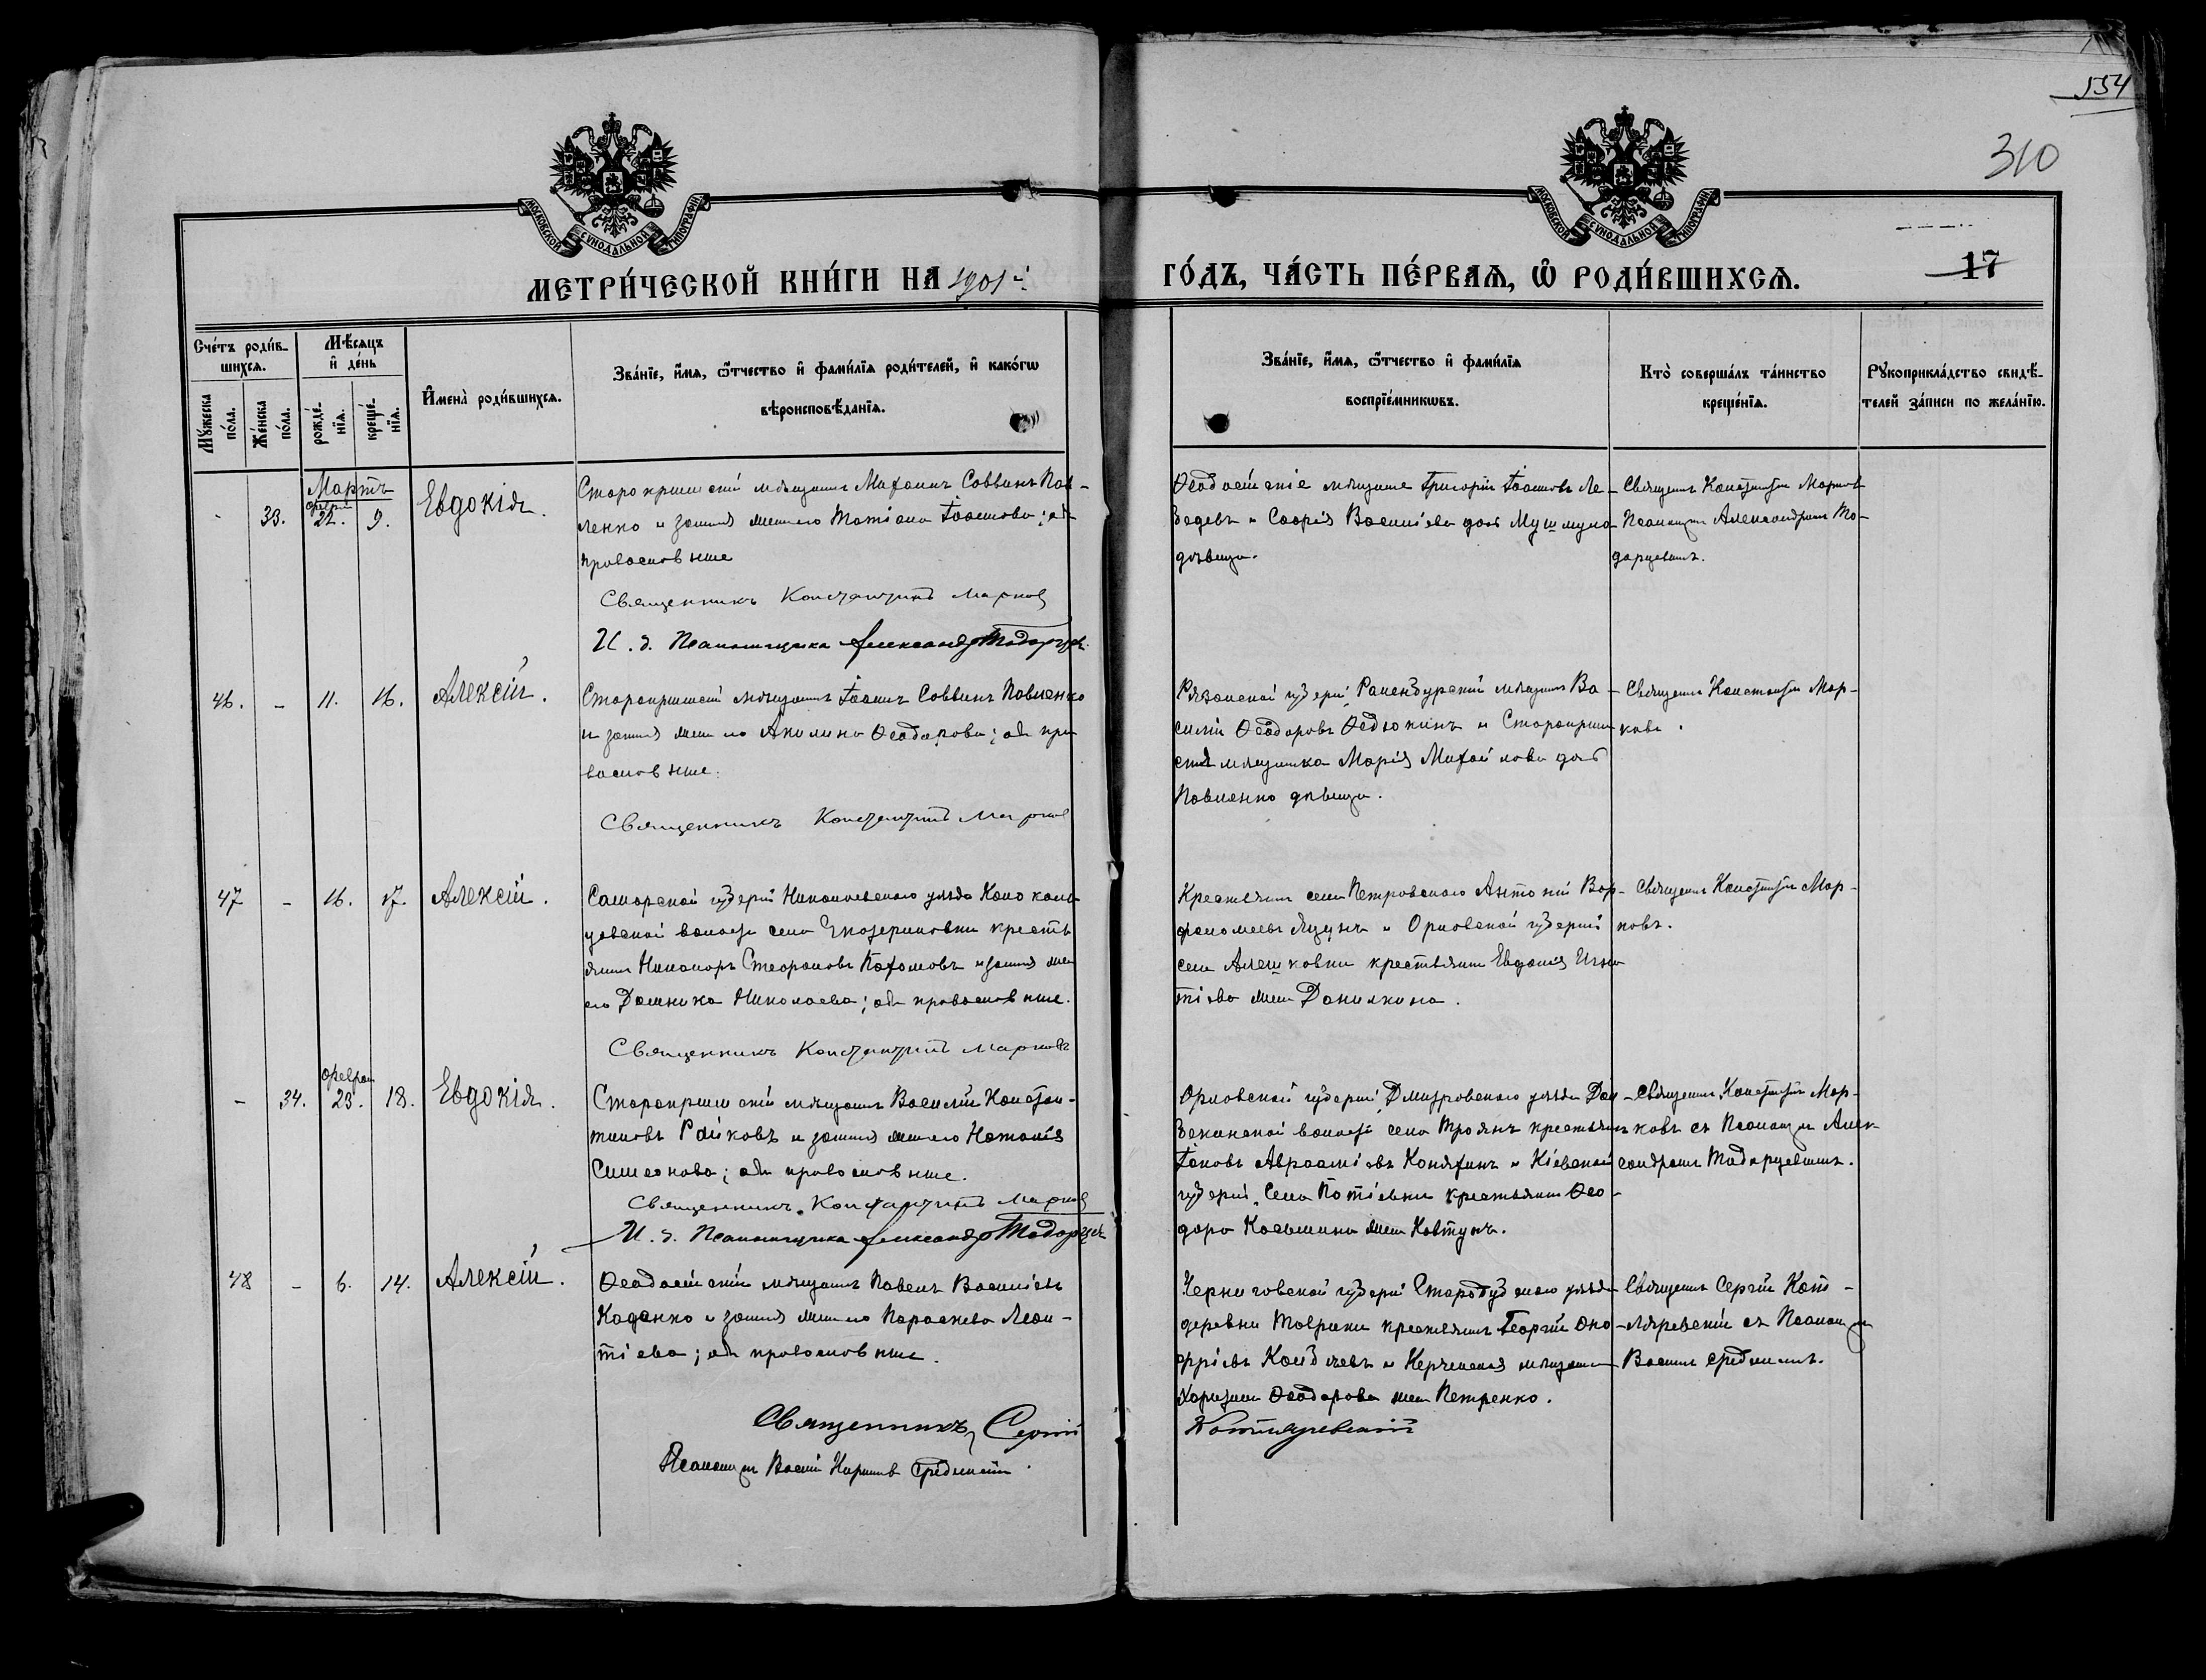 554
310
МОСКОВСКОЙ СѴНОДАЛЬНОЙ ТИПОГРАФІИ
МОСКОВСКОЙ СѴНОДАЛЬНОЙ ТИПОГРАФІИ
МЕТРИ́ЧЕСКОЙ КНИ́ГИ НА 1901й ГО́ДЪ, ЧА́СТЬ ПЕ́РВАЯ, Ѡ РОДИ́ВШИХСЯ.
17
Сче́тъ роди́в-
шихся.
Му́жеска по́ла.
Же́нска по́ла.
Мѣ́сяцъ
и де́нь
рожде́-
нїя.
креще́-
нїя.
Имена̀ роди́вшихся.
Зва́нїе, и́мя, ѻ́тчество и фами́лїя роди́телей, и како́гѡ
вѣроисповѣ́данїя.
Зва́нїе, и́мя, ѻ́тчество и фами́лїя
воспрїе́мникѡвъ.
Кто̀ соверша́лъ та́инство
креще́нїя.
Рꙋкоприкла́дство свидѣ́-
телей за́писи по жела́нїю.
Мартъ
-
33.
феврал
22.
9.
Евдокія.
Старокрымскій мѣщанинъ Михаилъ Саввинъ Пав-
ленко и законная жена его Татіана Іоаннова; оба
православные
Священникъ Константинъ Марков
И. д. Псаломщика Александр Тодорцев
Ѳеодосійскіе мѣщане Григорій Іоанновъ Ле-
бедевъ и Софія Василіева дочь Мушмула
дѣвица.
Священникъ Константинъ Марков
Псаломщик Александромъ То-
дорцевымъ.
46.
-
11.
16.
Алексій.
Старокрымскій мѣщанинъ Іоаннъ Саввинъ Павленко
и законная жена его Акилина Ѳеодорова; оба пра
вославные.
Священникъ Константинъ Марков
Рязанской губерніи, Раненбургскій мѣщанинъ Ва-
силій Ѳеодоровъ Ѳедюкинъ и Старокрым
ская мѣщанка Марія Михайлова дочь
Павленко дѣвица.
Священникъ Константинъ Мар-
ковъ.
47
-
16.
17.
Алексій.
Самарской губерніи Николаевскаго уѣзда
села Екатериновки кресть
янинъ Никаноръ Стефановъ Пахомовъ и законная жена
его Домника Николаева; оба православные.
Священникъ Константинъ Марковъ
Крестьянинъ села Петровскаго Антоній Вар-
фоломеевъ Яцунъ и Орловской губерніи
села Алешковки крестьянка Евдокія Игна
тіева жена Данилкина.
Священникъ Константинъ Мар-
ковъ.
-
34.
феврал
23.
18.
Евдокія.
Старокрымскій мѣщанинъ Василій Констан-
тиновъ Райковъ и законная жена его Наталія
Симеонова; оба православные.
Священникъ Константинъ Марков
И. д. Псаломщика Александр Тодорцев
Орловской губерніи, Дмитровскаго уѣзда
волости села Троянъ крестьянинъ
Іаковъ Аврааміевъ Конякинъ и Кіевской
губерніи, села Потіевки крестьянка Ѳео-
дора Косьмина жена Ковтунъ.
Священникъ Константинъ Мар-
ковъ съ Псаломщик Алек-
сандромъ Тодорцевымъ.
48
-
6.
14.
Алексій.
Ѳеодосійскій мѣщанинъ Павелъ Василіевъ
Каденко и законная жена его Параскева Леон-
тіева; оба православные.
Священникъ Сергій
Котляревскій
Псаломщик Василій
Черниговской губерніи Стародубскаго уѣзда
деревни Таврики крестьянинъ Георгій Ону-
фріевъ и Керченская мѣщанка
Харитина Ѳеодорова жена Петренко.
Священникъ Сергій Кот-
ляревскій съ Псаломщик